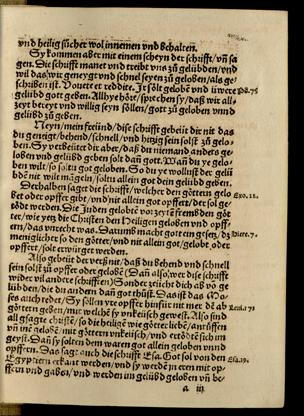 vnd heilig sücher wol innemen vnd behalten.
Sy kommen aber mit einem scheyn der schrifft/ vñ sa
gen. Die schrifft manet vnd treibt vns zů gelübden/ vnd
wil das wir geneygt vnd schnel seyen zů geloben/als ge
schriben ist. Vouete et reddite. Ir sölt gelobē vnd üwere Ps.75
gelübd got geben. Allhye hört/ sprechen sy/ daß wir all-
zeyt bereyt vnd willig seyn söllen/ gott zů geloben vnnd
gelübd zů geben.
Neyn/ mein freünd/ dise schrifft gebeüt dir nit das
du geneigt/behend/schnell/ vnd hitzig sein solst zů gelo-
ben. Sy verbeütet dir aber/ daß du niemand anders ge-
loben vnd gelübd geben solt dañ gott. Wañ du ye gelo-
ben wilt/ so soltu got geloben. So du ye woltest der gelü
bdē nit manglen/ soltu allein got dein gelübd geben.
Derhalben sagt die schrifft/ welcher den göttern gelo Exo.22.
bet oder opffer gibt/ vnd nit allein got opffert/ der sol ge-
tödt werden. Die Juden gelobtē vor zeytē frembden göt
ter/ wie yetz die Christen den heiligen geloben vnd opff-
ern/ das vnrecht was. Darumb macht got ein gesetz/ dz Hiere.7.
menigklicher so den götter/ vnd nit allein got/ gelobt oder
opffert/ solt erwürget werden.
Also gebeüt der versz nit/ daß du behend vnd schnell
sein solst zů opffer oder gelobē (Dañ also/ were dise schrifft
wider vil andere schrifften) Sonder zeücht dich ab vō ge
lübden/ die du andern dañ got thůst. Da ist das Mo-
ses auch redet/ Sy söllen yre opffer hinfür nit mer dē ab- Leui.17
göttern geben/ mit welchē sy vnkeüsch gewest. Also sind
all gsagte christē/ so die heiligē wie götter liebē/ anrüffen
vñ inē gelobē/ mit göttern vnkeüsch/ vnd ertödtē sich im
geyst. Dañ sy solten dem waren got allein geloben vnnd
opffern. Das sagt auch die schrifft Esa. Got sol von den Esa.19.
Egyptern erkant werden/ vnd sy werdē in eren mit op-
ffern vnd gaben/ vnd werden im gelübd geloben vñ be-
a iij